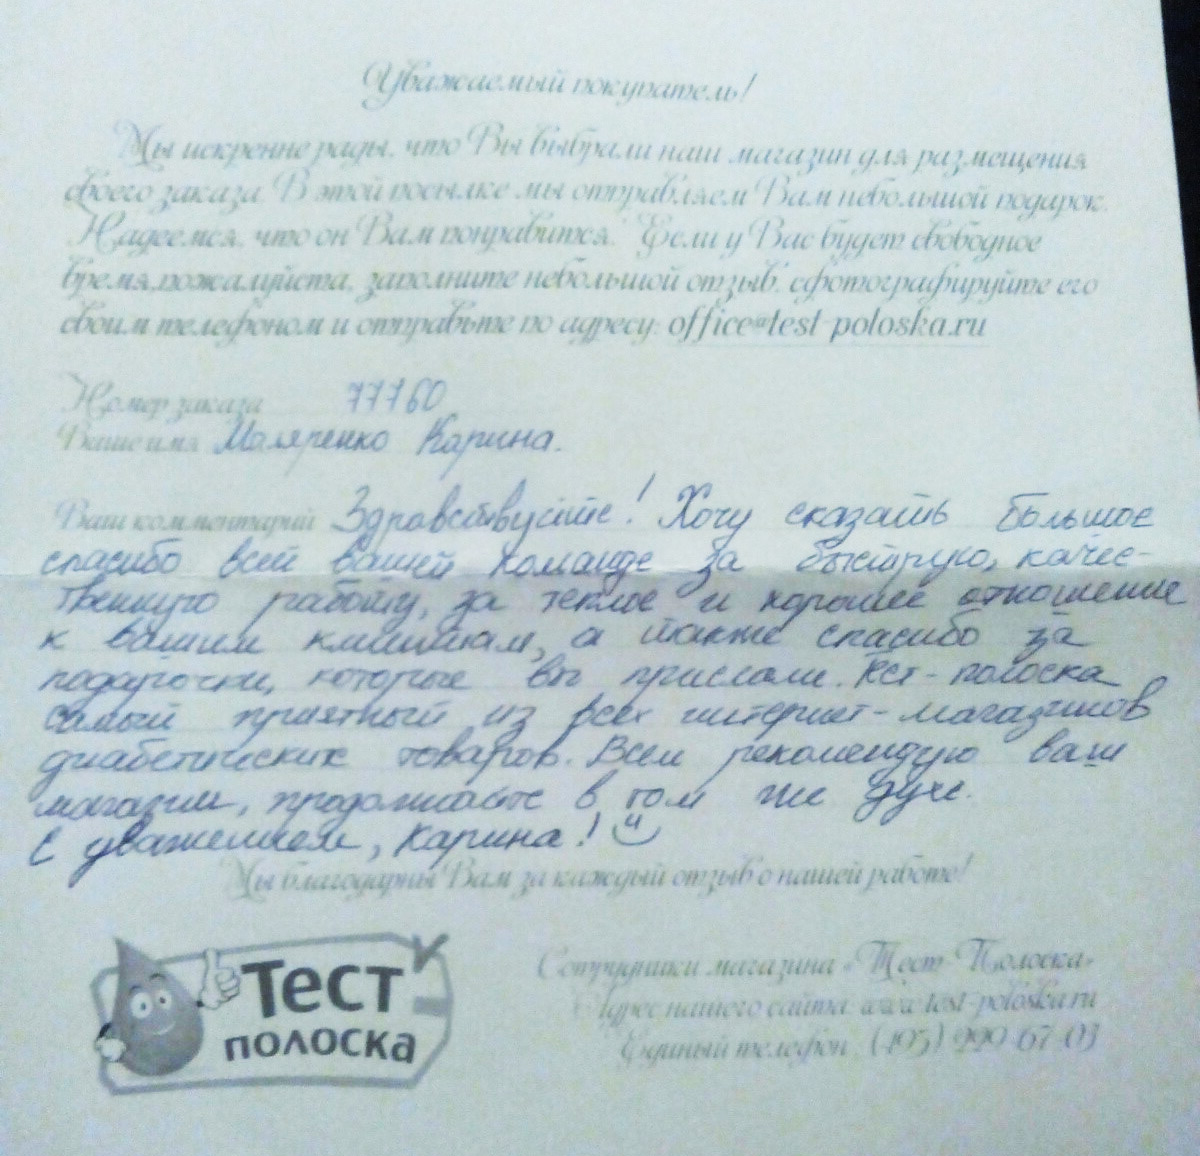 Уважаемый покупатель!
Мы искренне рады, что Вы выбрали наш магазин для размещения
своего заказа. В этой посылке мы отправляем Вам небольшой подарок.
Надеемся, что он Вам понравится. Если у Вас будет свободное
время, пожалуйста, заполните небольшой отзыв, сфотографируйте его
своим телефоном и отправьте по адресу: office@test-poloska.ru
Номер заказа 77760
Ваше имя Маляренко Карина.
Ваш комментарий Здравствуйте! Хочу сказать большое
спасибо всей вашей команде за быструю, качес-
твенную работу, за теплое и хорошее отношение
к вашим клиентам, а также спасибо за
подарочки, которые вы прислали. Тест-полоска
самый приятный из всех интернет-магазинов
диабетических товаров. Всем рекомендую ваш
магазин, продолжайте в том же духе.
С уважением, Карина!
Мы благодарны Вам за каждый отзыв о нашей работе!
Тест
полоска
Сотрудники магазина «Тест-Полоска»
Адрес нашего сайта: www.test-poloska.ru
Единый телефон: (495) 999-67-03